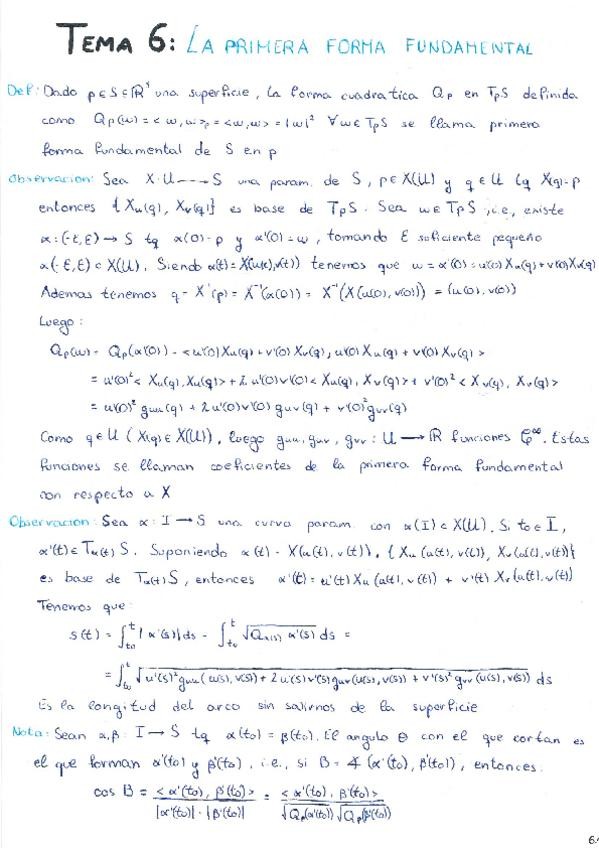 TEMA 6: LA PRIMERA FORMA FUNDAMENTAL
Def: Dado p∈S⊂ℝ³ una superficie, la forma cuadratica Qp en TpS definida
como Qp(w) = <w,w>p = <w,w> = |w|² ∀w∈TpS se llama primera
forma fundamental de S en p
Observacion: Sea X: U ---→ S una param. de S, p∈X(U) y q∈U tq X(q)=p
entonces {Xu(q), Xv(q)} es base de TpS. Sea w∈TpS, i.e, existe
α:(-ε,ε) → S tq α(0)=p y α'(0)=w, tomando ε suficiente pequeño
α(-ε,ε) ⊂ X(U). Siendo α(t)=X(u(t),v(t)) tenemos que w = α'(0) = u'(0)Xu(q)+v'(0)Xv(q)
Ademas tenemos q = X⁻¹(p) = X⁻¹(α(0)) = X⁻¹(X(u(0), v(0))) = (u(0), v(0))
Luego:
Qp(w) = Qp(α'(0)) = <u'(0)Xu(q)+v'(0)Xv(q), u'(0)Xu(q)+v'(0)Xv(q)>
= u'(0)²<Xu(q),Xu(q)> + 2 u'(0)v'(0)<Xu(q), Xv(q)> + v'(0)²<Xv(q), Xv(q)>
= u'(0)² guu(q) + 2u'(0)v'(0) guv(q) + v'(0)² gvv(q)
Como q∈U (X(q)∈X(U)), luego guu, guv, gvv : U → ℝ funciones C^∞. Estas
funciones se llaman coeficientes de la primera forma fundamental
con respecto a X
Observacion: Sea α: I→S una curva param. con α(I)⊂X(U). Si to∈I,
α'(t)∈Tα(t)S. Suponiendo α(t) = X(u(t), v(t)), {Xu(u(t), v(t)), Xv(u(t), v(t))}
es base de Tα(t)S, entonces α'(t) = u'(t)Xu(u(t), v(t)) + v'(t)Xv(u(t), v(t))
Tenemos que:
s(t) = ∫_{to}^{t} |α'(s)|ds = ∫_{to}^{t} √(Qα(s) α'(s)) ds =
= ∫_{to}^{t} √(u'(s)² guu(u(s), v(s)) + 2u'(s)v'(s)guv(u(s), v(s)) + v'(s)² gvv(u(s), v(s))) ds
Es la longitud del arco sin salirnos de la superficie
Nota: Sean α,β: I→S tq α(to) = β(to). El angulo θ con el que cortan es
el que forman α'(to) y β'(to), i.e., si B = ∢(α'(to), β'(to)), entonces:
cos B = <α'(to), β'(to)> / |α'(to)|·|β'(to)| = <α'(to), β'(to)> / √Qp(α'(to)) √Qp(β'(to))